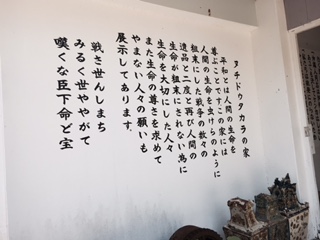 ヌチドウタカラの家
平和とは人間の生命を
尊ぶことです。この家には
人間の生命を虫けらのように
粗末にした戦争の数々の
遺品と二度と再び人間の
生命が粗末にされない為に
生命を大切にした人々
また生命の尊さを求めて
やまない人々の願いも
展示してあります。
戦さ世んしまち
みるく世ややがて
嘆くな臣下命ど宝